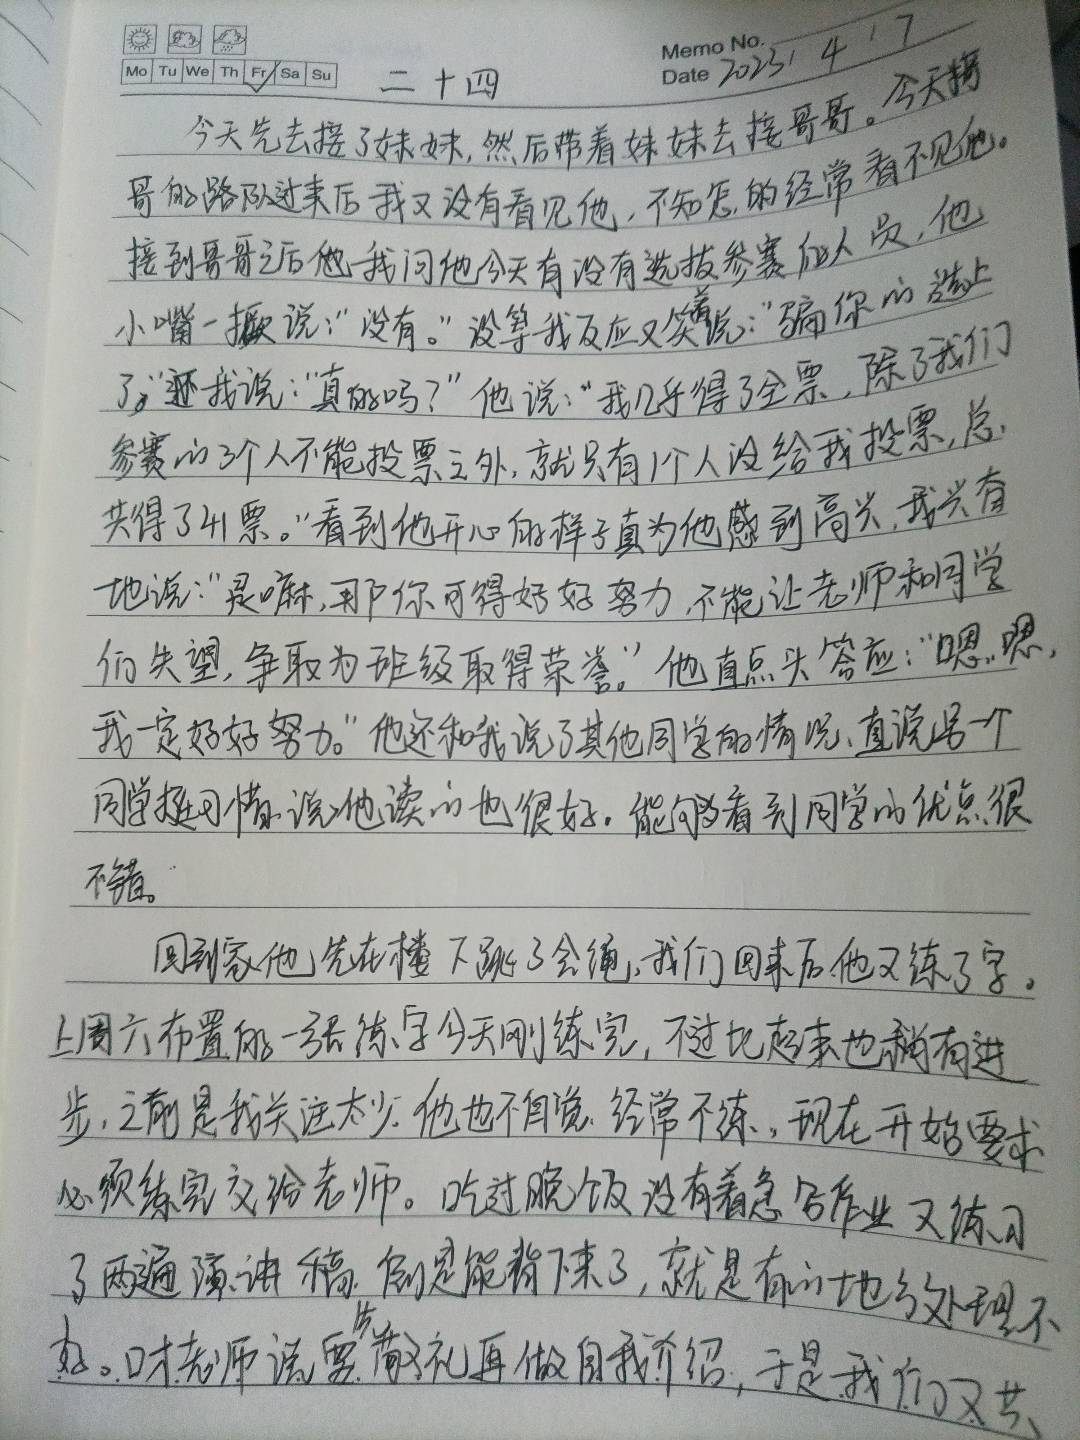 Memo No.
Mo Tu We Th Fr Sa Su
Date 2023.4.7
二十四
今天先去接了妹妹,然后带着妹妹去接哥哥。今天接
哥的路队过来后我又没有看见他,不知怎的经常看不见他。
接到哥哥之后他我问他今天有没有选拔参赛人员,他
小嘴一撅说:"没有。"没等我反应又笑着说:"骗你的选上
了"我说:"真的吗?"他说:"我几乎得了全票,除了我们
参赛的3个人不能投票之外,就只有1个人没给我投票,总
共得了41票。"看到他开心的样子真为他感到高兴,我兴奋
地说:"是嘛,那你可得好好努力,不能让老师和同学
们失望,争取为班级取得荣誉。"他直点头答应:"嗯嗯,
我一定好好努力。"他还和我说了其他同学的情况、直说另一个
同学挺可惜,说他读的也很好。能够看到同学的优点很
不错。
回到家他先在楼下跳了会绳,我们回来后他又练了字。
上周六布置的一张练字今天刚练完,不过比起来也稍有进
步,之前是我关注太少.他也不自觉.经常不练,现在开始要求
必须练完交给老师。吃过晚饭没有着急写作业又练习
了两遍演讲稿.倒是能背下来了,就是有的地方处理不
好。口才老师说要先敬礼再做自我介绍,于是我们又共